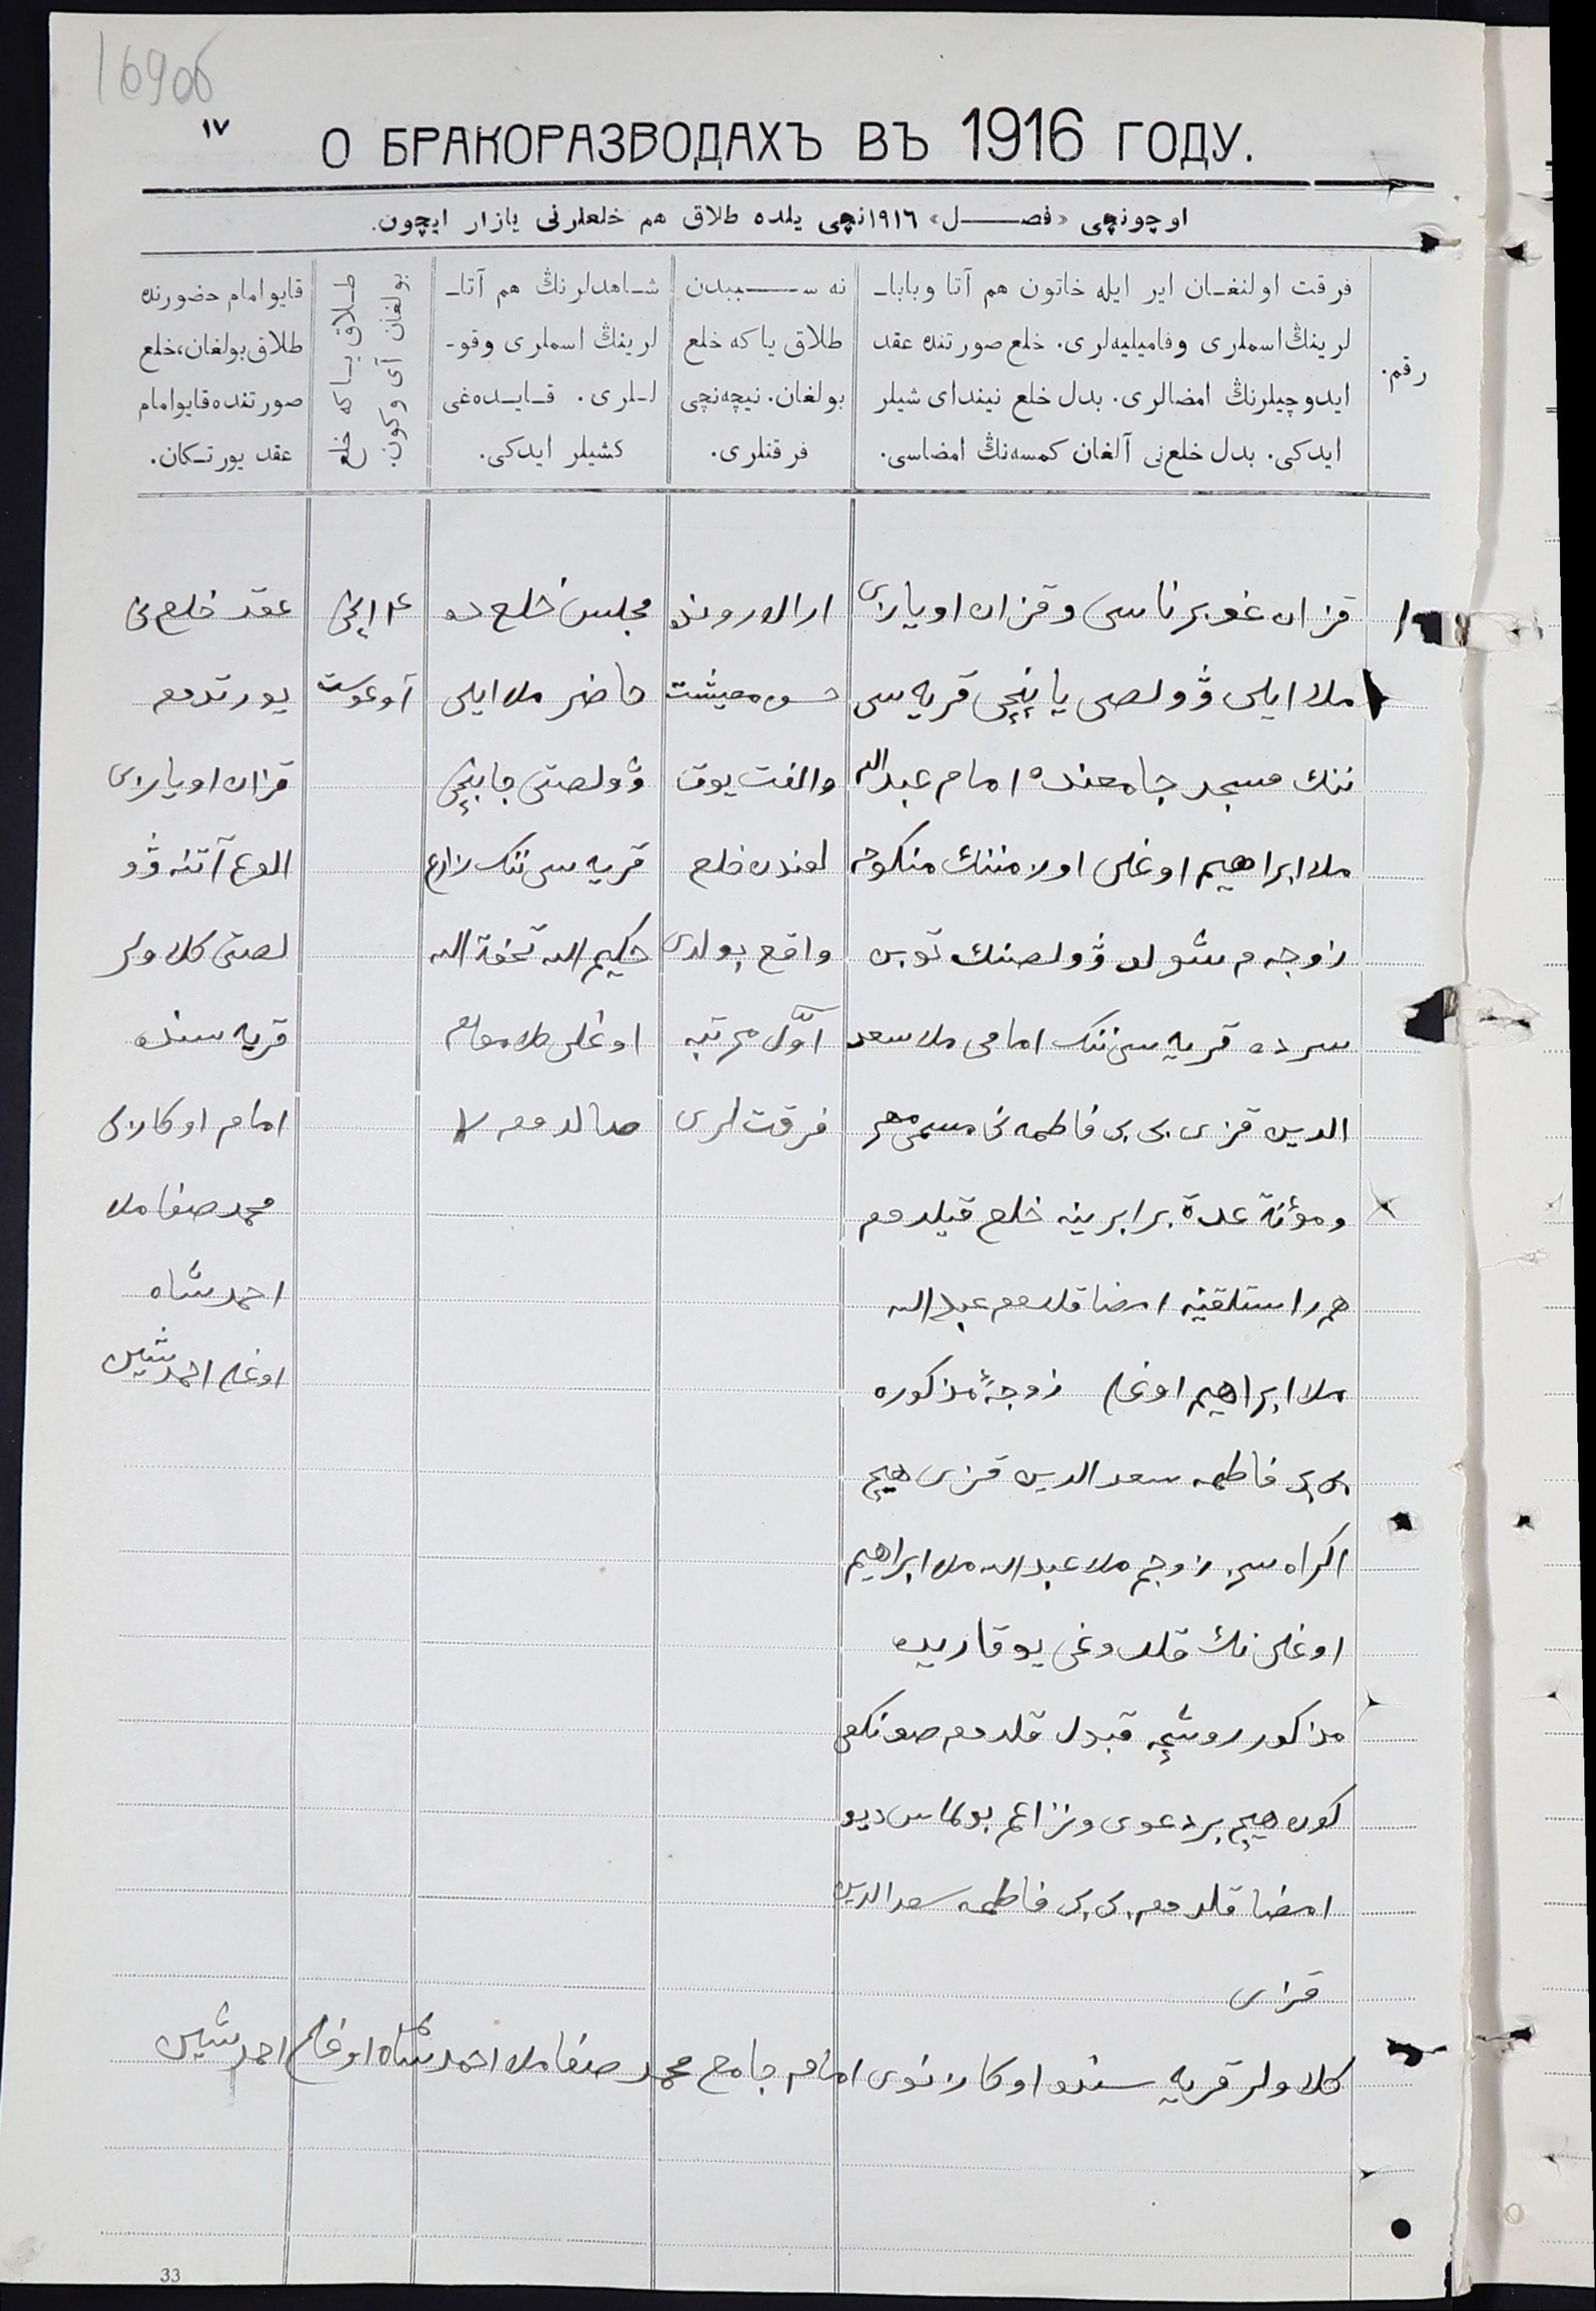 169об
١٧
О БРАКОРАЗВОДАХЪ ВЪ 1916 ГОДУ.
اوچونچی «فصل» ١٩١٦نچی یلده طلاق هم خلعلرنی یازار ایچون.
رقم.
فرقت اولنغان ایر ایله خاتون هم آتا وبابا-
لرینڭ اسملری وفامیلیه‌لری. خلع صورتنده عقد
ایدوچیلرنڭ امضالری. بدل خلع نیندای شیلر
ایدکی. بدل خلع‌نی آلغان کمسه‌نڭ امضاسی.
نه سببدن
طلاق یا که خلع
بولغان. نیچه‌نچی
فرقتلری.
شاهدلرنڭ هم آتا-
لرینڭ اسملری وقو-
لـلری. قایده‌غی
کشیلر ایدکی.
طلاق یا که خلع
بولغان آی وکون.
قایو امام حضورنده
طلاق بولغان، خلع
صورتنده قایو امام
عقد یورتکان.
١
قزان غوبرناسی وقزان اویازی
ملا ایلی ڤولصی یاپنچی قریه سی
ننك مسجد جامعنده امام عبدالله
ملا ابراهیم اوغلی اولا مننك منکوحه
زوجه م شولد ڤولصننك توبن
سرده قریه سی ننك امامی ملا سعد
الدین قزی بی بی فاطمه نی مسمی مهر
ومؤنة عدة برابرینه خلع قیلدم
هم راستلقینه امضا قلدم عبدالله
ملا ابراهیم اوغلی زوجۀ مذکوره
بی بی فاطمه سعد الدین قزی هیچ
اکراه سز زوجم ملا عبدالله ملا ابراهیم
اوغلی نك قلدوغی یوقاریده
مذکور روشچه قبول قلدم صونکغی
کون هیچ بر دعوی ونزاعم بولماس دیو
امضا قلدم بی بی فاطمه سعدالدین
قزی
ارالارونده
حسن معیشت
والفت یوق
لغندن خلع
واقع بولدی
اوّل مرتبه
فرقت لری
مجلس خلع ده
حاضر ملا ایلی
ڤولصتی جاپنچی
قریه سی ننك زارع
حکیم الله تحفة الله
اوغلی
صالدم
١٤ نچی
آوغوست
عقد خلع نی
یورتدم
قزان اویازی
الوغ آتنه ڤو
لصتی کلاولر
قریه سنده
امام اوکازلی
محمد صفا ملا
احمدشاه
اوغلی احمدشین
کلاولر قریه سنده اوکازنوی امام جامع محمد صفا ملا احمدشاه اوغلی احمدشین
33